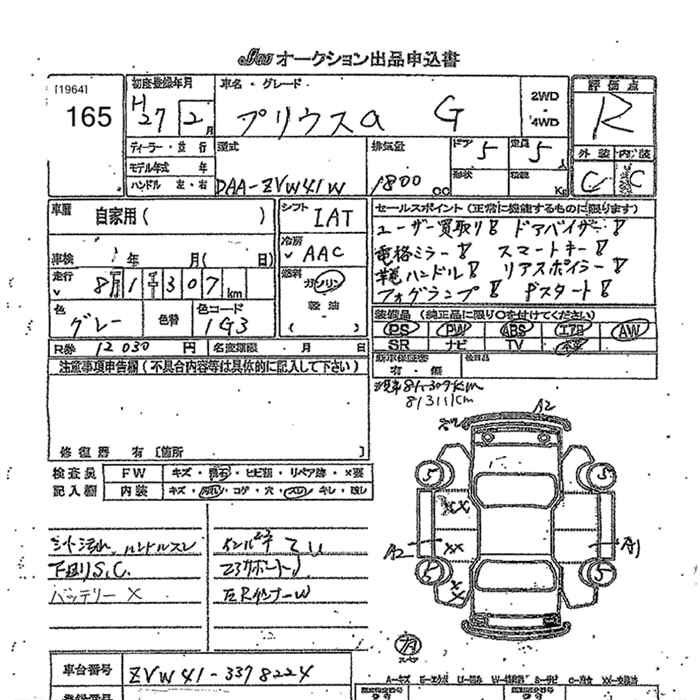 JBA オークション出品申込書
[1964]
165
初度登録年月
H27 2月
車名・グレード
プリウスα G
2WD
・
4WD
評価点
R
ディーラー・並行
モデル年式 年
ハンドル 左・右
型式
DAA-ZVW41W
排気量
1800 CC
ドア 5
形状
定員 5人
積載 Kg
外装 内装
C C
車歴
自家用( )
シフト
IAT
冷房
AAC
車検 年 月( 日)
走行
81307km
燃料
ガソリン
軽油
( )
色
グレー
色替
色コード
1G3
セールスポイント(正常に機能するものに限ります)
ユーザー買取り! ドアバイザー!
電格ミラー! スマートキー!
革ハンドル! リアスポイラー!
フォグランプ! Pスタート!
装備品(純正品に限り○を付けてください)
PS PW ABS エアB AW
SR ナビ TV 本革
R券 12030円
名変期限 月 日
新車保証書
有・無
後日品
注意事項申告欄(不具合内容等は具体的に記入して下さい)
現車81307km
81311km
修復歴 有[箇所 ]
検査員
記入欄
FW キズ・飛石・ヒビ割・リペア跡・×要
内装 キズ・汚れ・コゲ・穴・スレ・キレ・残し
シート汚れ、ハンドルスレ
下廻りS.C.
バッテリー×
左Rインナー W
A2
5
5
XX
A2
XX
A1
5
5
X
車台番号
ZVW41-3378224